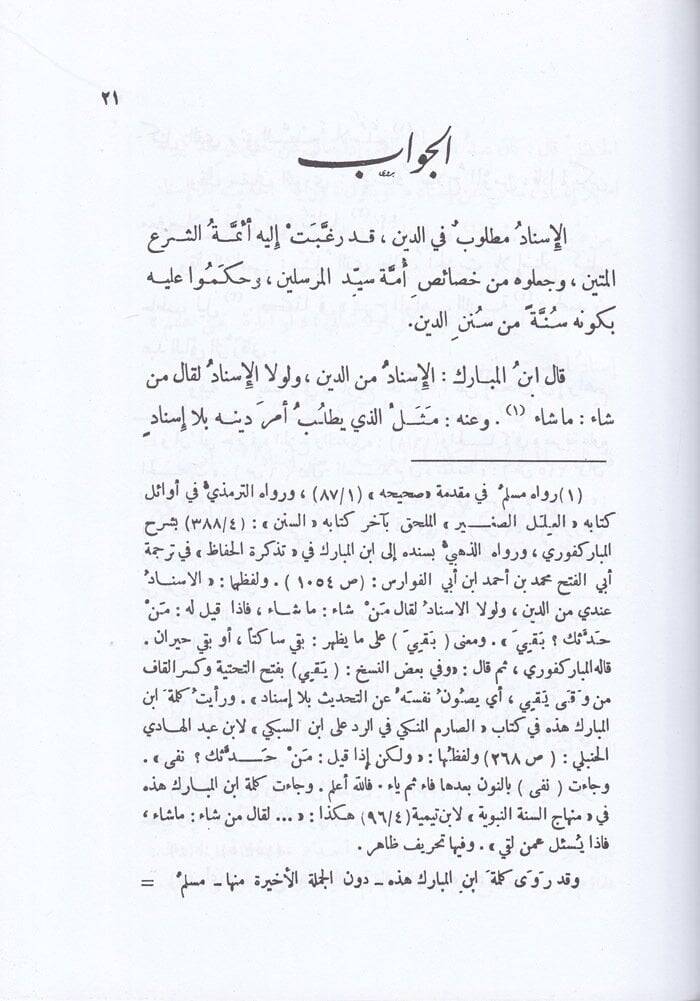 ٢١
الجواب
الإسنادُ مطلوبٌ في الدين ، قد رغَّبَتْ إليه أئمَّةُ الشرع
المتين ، وجعلوه من خصائصِ أُمَّة سيِّدِ المرسلين ، وحكَمُوا عليه
بكونه سُنَّةً من سُننِ الدين.
قال ابنُ المبارك : الإسنادُ من الدين ، ولولا الإسنادُ لقال من
شاء : ما شاء (١) . وعنه : مَثَلُ الذي يطلُبُ أمرَ دينه بلا إسنادٍ
(١) رواه مسلمٌ في مقدمة «صحيحه» (٨٧/١) ، ورواه الترمذيُّ في أوائل
كتابه «العِلَل الصغير» الملحق بآخر كتابه «السنن» : (٣٨٨/٤) بشرح
المباركفوري ، ورواه الذهبيُّ بسنده إلى ابن المبارك في «تذكرة الحفاظ» في ترجمة
أبي الفتح محمد بن أحمد ابن أبي الفوارس : (ص ١٠٥٤) . ولفظها : «الاسنادُ
عندي من الدين ، ولولا الاسنادُ لقال مَنْ شاء : ما شاء ، فاذا قيل له : مَنْ
حَدَّثك ؟ بَقيَ» . ومعنى (بَقيَ) على ما يظهر : بقي ساكتاً ، أو بقي حيران .
قاله المباركفوري ، ثم قال : «وفي بعض النسخ : (يَقي) بفتح التحتية وكسر القاف
من وَقَى يَقي ، أي يصُونُ نفسَهُ عن التحديث بلا إسناد» . ورأيتُ كلمةَ ابن
المبارك هذه في كتاب «الصارم المنكي في الرد على ابن السبكي» لابن عبد الهادي
الحنبلي : (ص ٢٦٨) ولفظُها : «ولكن إذا قيل : مَنْ حَدَّثك ؟ نفى» .
وجاءت (نفى) بالنون بعدها فاء ثم ياء . فالله أعلم . وجاءت كلمة ابن المبارك هذه
في «منهاج السنة النبوية» لابن تيمية (٩٦/٤) هكذا : «... لقال من شاء : ماشاء ،
فاذا يُسئل عمن لقي» . وفيها تحريف ظاهر .
وقد رَوَى كلمةَ ابنِ المبارك هذه – دون الجملة الأخيرة منها – مسلمٌ =